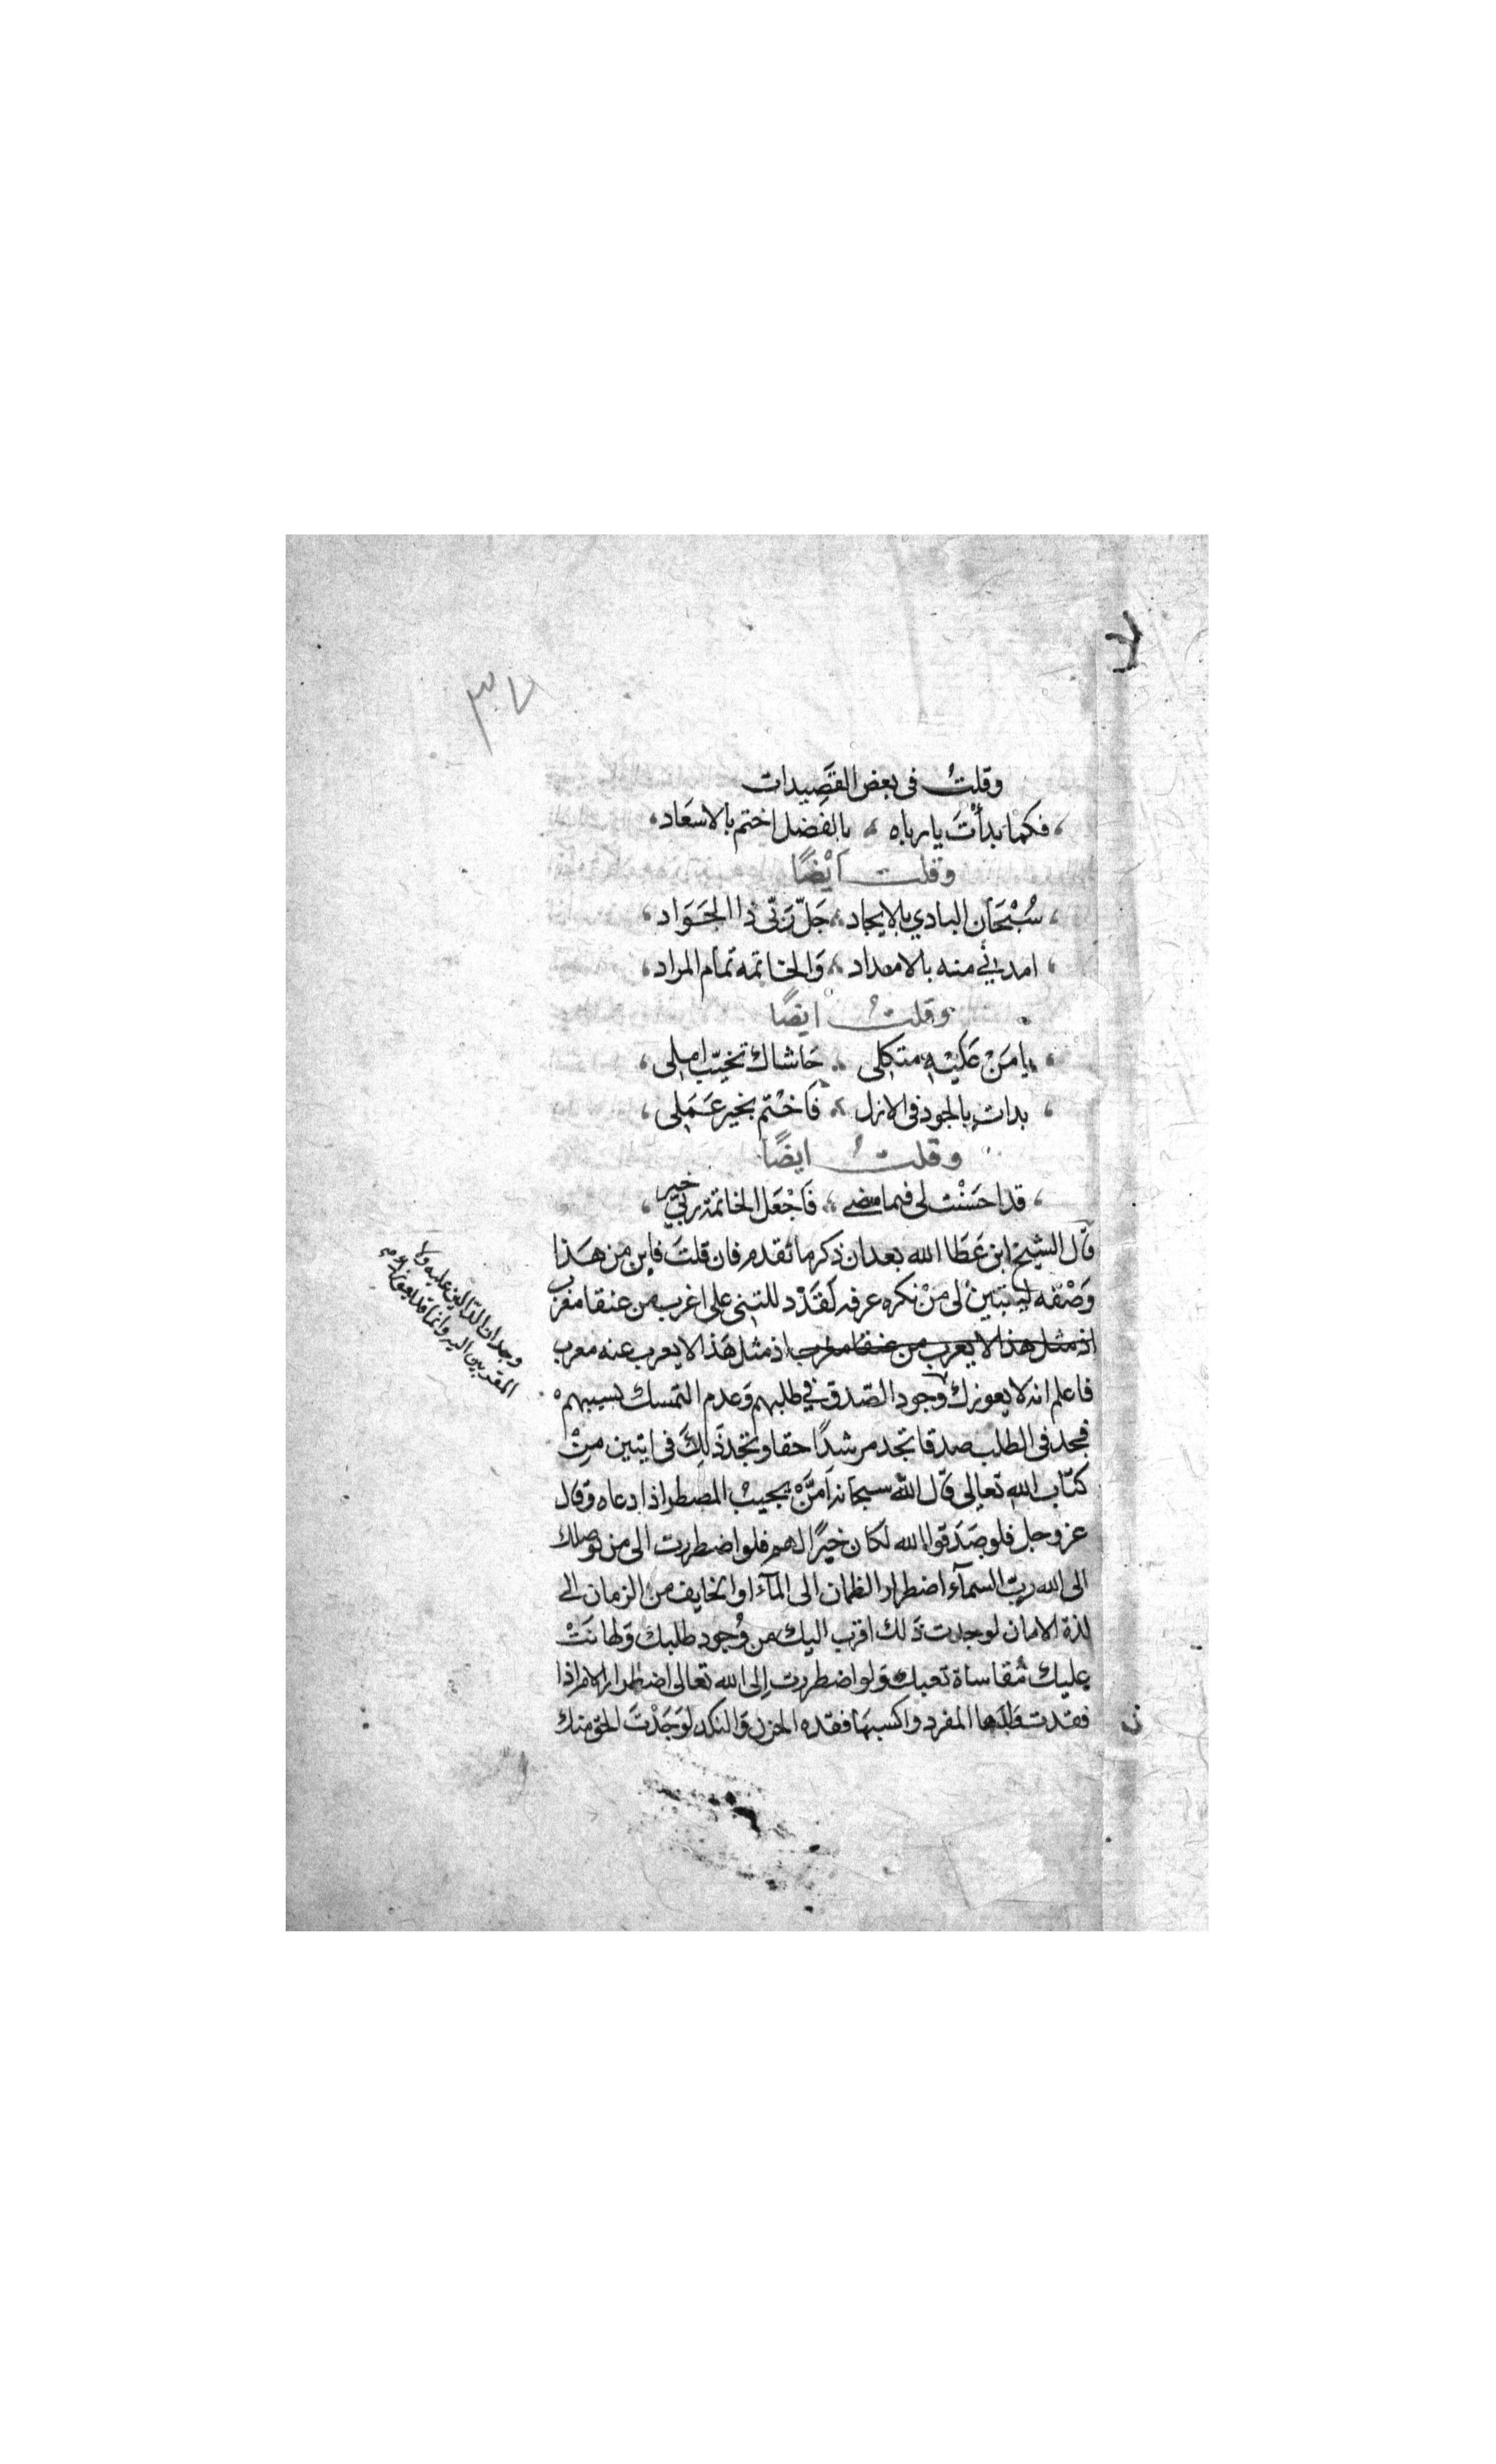 ٣٠٧
وقلتُ فى بعض القَصِيدات
فكما بدأْتَ يا رباه ، بالفضل اختم بالاسعَاد
وقلت أيْضًا
سُبْحَان البادي بالايجاد ، جَلّ رَبّى ذا الجَوَاد
امدنى منه بالامداد ، وَالخاتمه تمام المراد
وقلتُ ايضًا
يا مَنْ عَلَيْهِ متكلى ، حَاشاك تخيّب املى
بدات بالجود فى الازل ، فَاخْتم بخير عَمَلِى
وقلتُ ايضًا
قد احسَنْت لى فيما مضى ، فَاجْعَل الخاتمة ربّى خير
قال الشيخ ابن عَطَا الله بعد ان ذكر ما تقدم فان قلتَ فاين من هَذا
وَصْفه لي نكره عرفه لَقَدْ د للتنى على اغرب من عنقا مغرب
اذ مثل هذا لا يعرب من عنقا مغرب اذ مثل هَذا لا يعرب عنه معرب
فاعلم انه لا يعوزك وجود الصّدق في طلبهم وَعدم التمسك بسببهم
وجدان الدّالين عليه ولا
المقربين اليه وانما قد يعوزك عدم
فجد فى الطلب صدقا تجد مرشدًا حقا وتجد ذَلِكَ فى ايتين مِنْ
كتَاب الله تعالى قَال الله سبحانه اَمَّنْ يجيبْ المضطر اذا دعاه وَقال
عز وجل فلو صَدَقوا الله لكان خيرًا لهم فلو اضطررت الى من يوصلك
الى الله ربّ السمآء اضطرار الظمان الى المآء او الخايف من الزمان الى
لذة الامان لوجدت ذَلك اقرب اليك من وُجود طلبك وَلهانَتْ
عليك مُقاساة تعبك وَلو اضطررت اِلى الله تعالى اضطرار الام اذا
فقدت وَلدها المفرد واكسبهَا فقده الحزن وَالنكد لوَجَدْتَ الحق منك